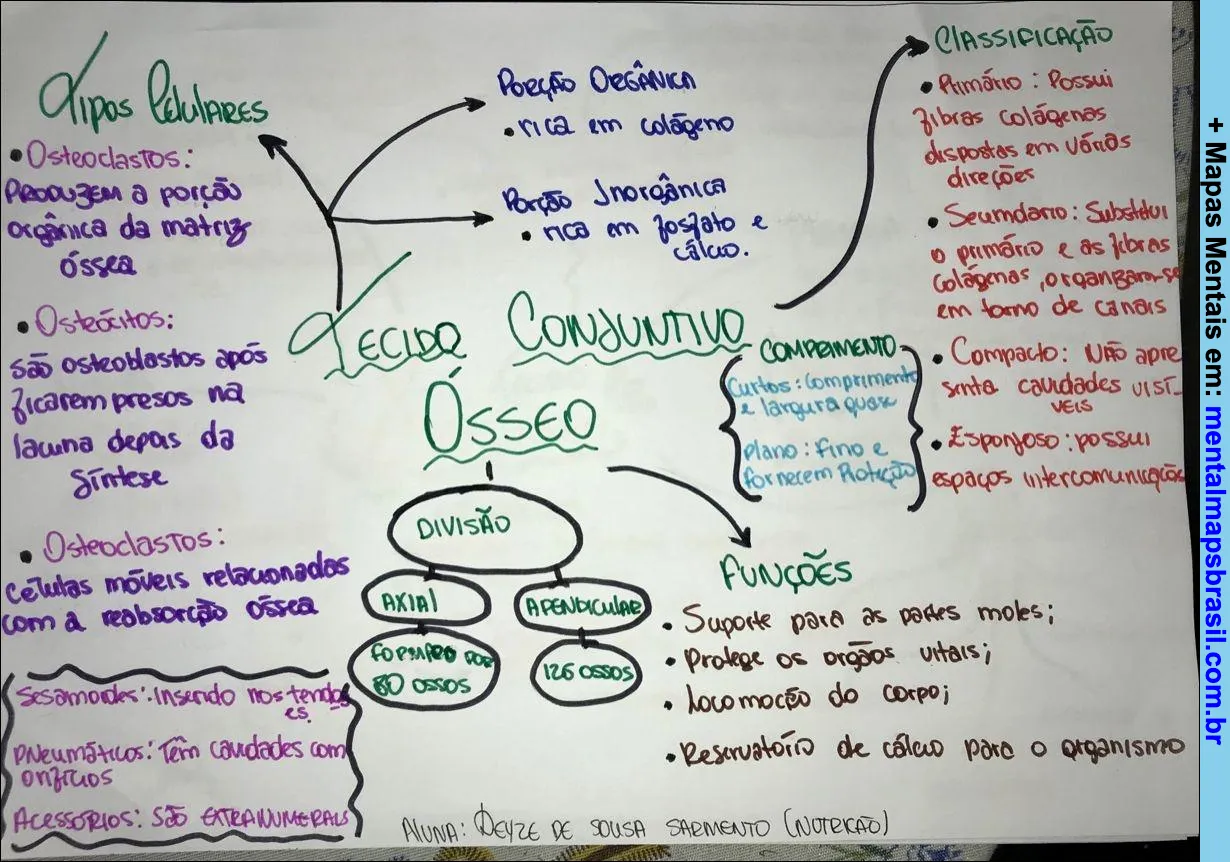 Tipos Celulares
• Osteoclastos:
PRODUZEM a porção
orgânica da matriz
óssea
• Osteócitos:
são osteoblastos após
ficarem presos na
lacuna depois da
síntese
• Osteoclastos:
células móveis relacionadas
com a reabsorção óssea
Sesamoides: Inserido nos tendo
es.
PNeumáticos: Têm cavidades com
orifícios
Acessórios: São EXTRANUMERAIS
PORÇÃO ORGÂNICA
• rica em colágeno
Porção Inorgânica
• rica em fosfato e
cálcio.
TECIDO CONJUNTIVO
ÓSSEO
DIVISÃO
AXIAl
APENDICULAR
FORMADO POR
80 OSSOS
126 OSSOS
COMPRIMENTO
Curtos: Comprimento
e largura quase
plano: Fino e
fornecem Proteção
ClASSIFICAÇÃO
• Primário: Possui
fibras colágenas
dispostas em várias
direções
• Seumdário: Substitui
o primário e as fibras
colágenas, organizam-se
em torno de canais
• Compacto: NÃO apre
senta cavidades VISÍ-
VEIS
• Esponjoso: possui
espaços intercomunicações
FUNÇÕES
• Suporte para as partes moles;
• Protege os orgãos vitais;
• Locomoção do corpo;
• Reservatório de cálcio para o organismo
AlUNA: DEYZE DE SOUSA SARMENTO (NUTRIÇÃO)
+ Mapas Mentais em: mentalmapsbrasil.com.br